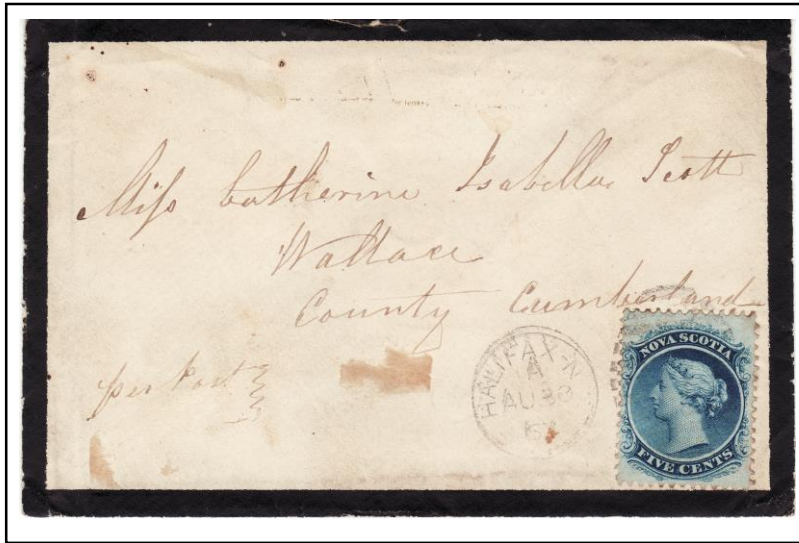 Miss Catherine Isabella Scott
Wallace
County Cumberland
per Post
HALIFAX·N
A
AU 30
NOVA SCOTIA
FIVE CENTS